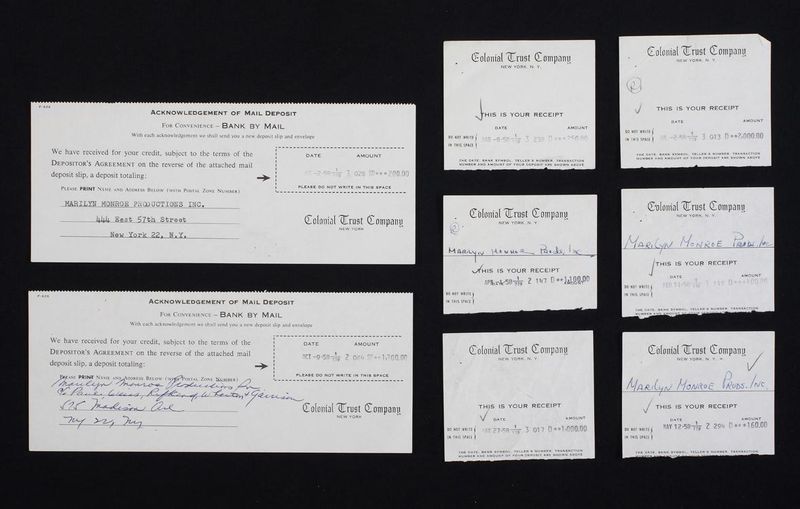 F-626
ACKNOWLEDGEMENT OF MAIL DEPOSIT
FOR CONVENIENCE – BANK BY MAIL
With each acknowledgement we shall send you a new deposit slip and envelope
We have received for your credit, subject to the terms of the
DEPOSITOR'S AGREEMENT on the reverse of the attached mail
deposit slip, a deposit totaling:
PLEASE PRINT NAME AND ADDRESS BELOW (WITH POSTAL ZONE NUMBER)
MARILYN MONROE PRODUCTIONS INC.
444 East 57th Street
New York 22, N.Y.
DATE AMOUNT
PLEASE DO NOT WRITE IN THIS SPACE
Colonial Trust Company
NEW YORK
F-626
ACKNOWLEDGEMENT OF MAIL DEPOSIT
FOR CONVENIENCE – BANK BY MAIL
With each acknowledgement we shall send you a new deposit slip and envelope
We have received for your credit, subject to the terms of the
DEPOSITOR'S AGREEMENT on the reverse of the attached mail
deposit slip, a deposit totaling:
PLEASE PRINT NAME AND ADDRESS BELOW (WITH POSTAL ZONE NUMBER)
Marilyn Monroe Productions Inc
Garrison
Madison Ave
NY NY
DATE AMOUNT
OCT-9-58
PLEASE DO NOT WRITE IN THIS SPACE
Colonial Trust Company
NEW YORK
Colonial Trust Company
NEW YORK, N. Y.
THIS IS YOUR RECEIPT
DATE AMOUNT
DO NOT WRITE
IN THIS SPACE
THE DATE, BANK SYMBOL, TELLER'S NUMBER, TRANSACTION
NUMBER AND AMOUNT OF YOUR DEPOSIT ARE SHOWN ABOVE
Colonial Trust Company
NEW YORK, N. Y.
THIS IS YOUR RECEIPT
DATE AMOUNT
DO NOT WRITE
IN THIS SPACE
3 013 D**2,000.00
THE DATE, BANK SYMBOL, TELLER'S NUMBER, TRANSACTION
NUMBER AND AMOUNT OF YOUR DEPOSIT ARE SHOWN ABOVE
Colonial Trust Company
NEW YORK, N. Y.
MARILYN MONROE Prods. Inc
THIS IS YOUR RECEIPT
AMOUNT
2 147 D**1,100.00
DO NOT WRITE
IN THIS SPACE
Colonial Trust Company
NEW YORK, N. Y.
MARILYN MONROE PRODS. INC
THIS IS YOUR RECEIPT
DATE AMOUNT
DO NOT WRITE
IN THIS SPACE
THE DATE, BANK SYMBOL, TELLER'S NUMBER, TRANSACTION
Colonial Trust Company
NEW YORK, N. Y.
THIS IS YOUR RECEIPT
DATE AMOUNT
DO NOT WRITE
IN THIS SPACE
3 017 D**1,000.00
THE DATE, BANK SYMBOL, TELLER'S NUMBER, TRANSACTION
NUMBER AND AMOUNT OF YOUR DEPOSIT ARE SHOWN ABOVE
Colonial Trust Company
NEW YORK, N. Y.
MARILYN MONROE PRODS. INC.
THIS IS YOUR RECEIPT
DATE AMOUNT
DO NOT WRITE
IN THIS SPACE
MAY 12-58 2 294 D***160.00
THE DATE, BANK SYMBOL, TELLER'S NUMBER, TRANSACTION